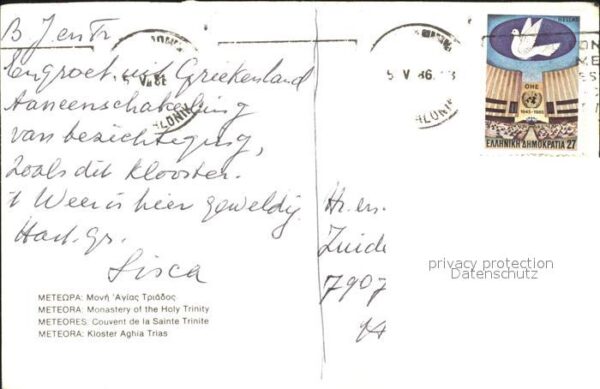 B J en Tr
Een groet uit Griekenland
Aaneenschakeling
van bezichtiging,
zoals dit klooster.
't Weer is hier geweldig
Hart. gr.
Sisca
ΜΕΤΕΩΡΑ: Μονή Ἁγίας Τριάδος
METEORA: Monastery of the Holy Trinity
METEORES: Couvent de la Sainte Trinite
METEORA: Kloster Aghia Trias
5 V 86
HELLAS
ΟΗΕ
1945-1985
ΕΛΛΗΝΙΚΗ ΔΗΜΟΚΡΑΤΙΑ 27
Hr. en
Zuide
7907
privacy protection
Datenschutz